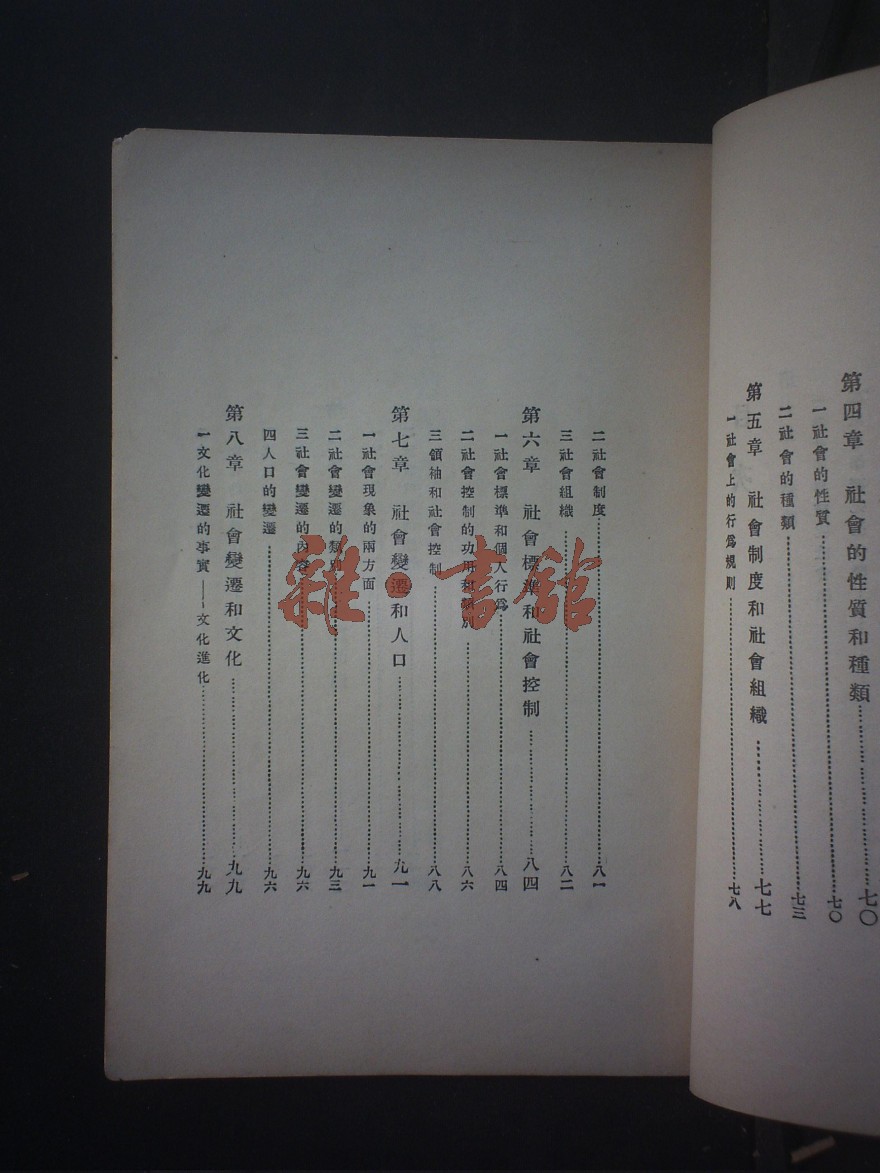 第四章 社會的性質和種類……七〇
一 社會的性質……七〇
二 社會的種類……七三
第五章 社會制度和社會組織……七七
一 社會上的行爲規則……七八
二 社會制度……八一
三 社會組織……八二
第六章 社會標準和社會控制……八四
一 社會標準和個人行爲……八四
二 社會控制的功用和類別……八六
三 領袖和社會控制……八八
第七章 社會變遷和人口……九一
一 社會現象的兩方面……九一
二 社會變遷的類別……九三
三 社會變遷的內容……九六
四 人口的變遷……九六
第八章 社會變遷和文化……九九
一 文化變遷的事實——文化進化……九九
雜·書館